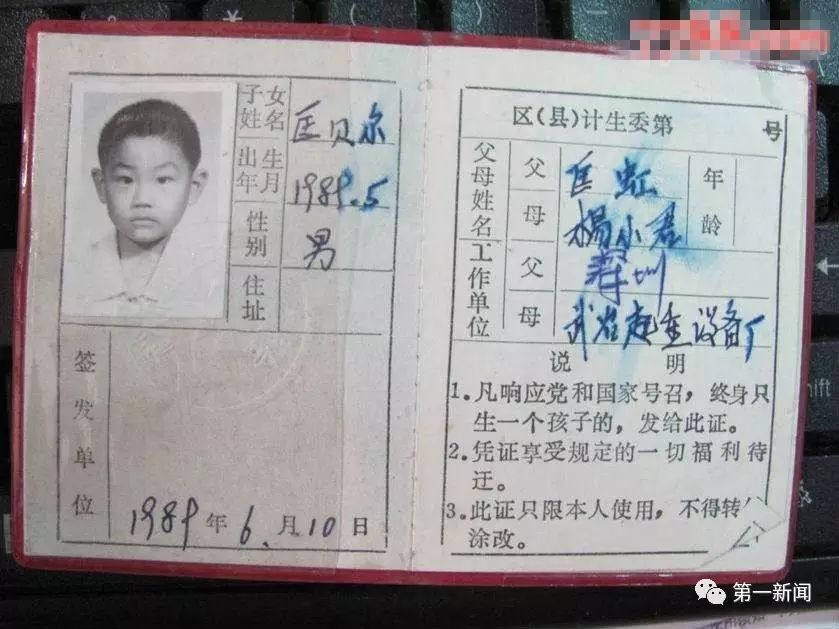 子女
姓名
匡贝尔
出生
年月
1989.5
性别
男
住址
签发单位
1989年6.月10日
区(县)计生委第 号
父母姓名
父
匡虹
年龄
母
杨小君
工作单位
父
深圳
母
武冶起重设备厂
说 明
1.凡响应党和国家号召，终身只
生一个孩子的，发给此证。
2.凭证享受规定的一切福利待
迁。
3.此证只限本人使用，不得转
涂改。
第一新闻